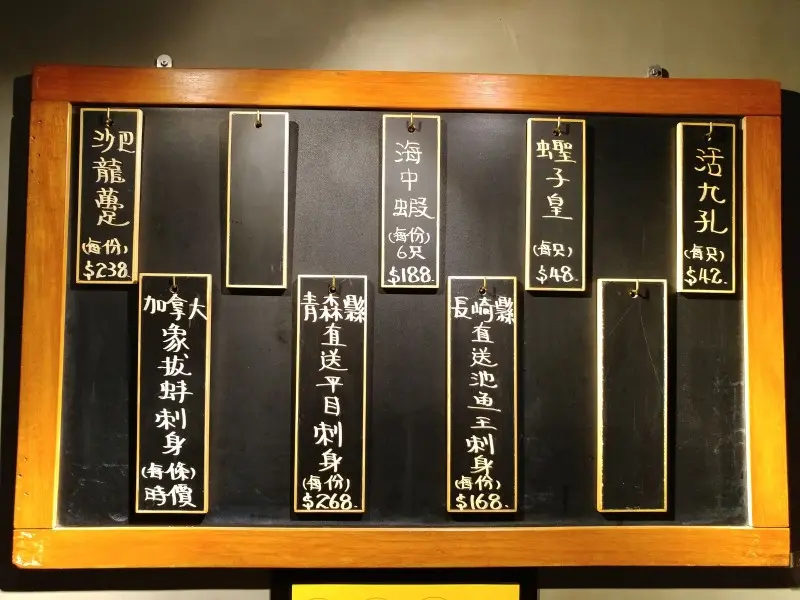 沙巴龍躉
(每份)
$238.
海中蝦
(每份)
6只
$188.
蟶子皇
(每只)
$48.
活九孔
(每只)
$42.
加拿大
象拔蚌刺身
(每條)
時價
青森縣
直送平目刺身
(每份)
$268.
長崎縣
直送池魚王刺身
(每份)
$168.